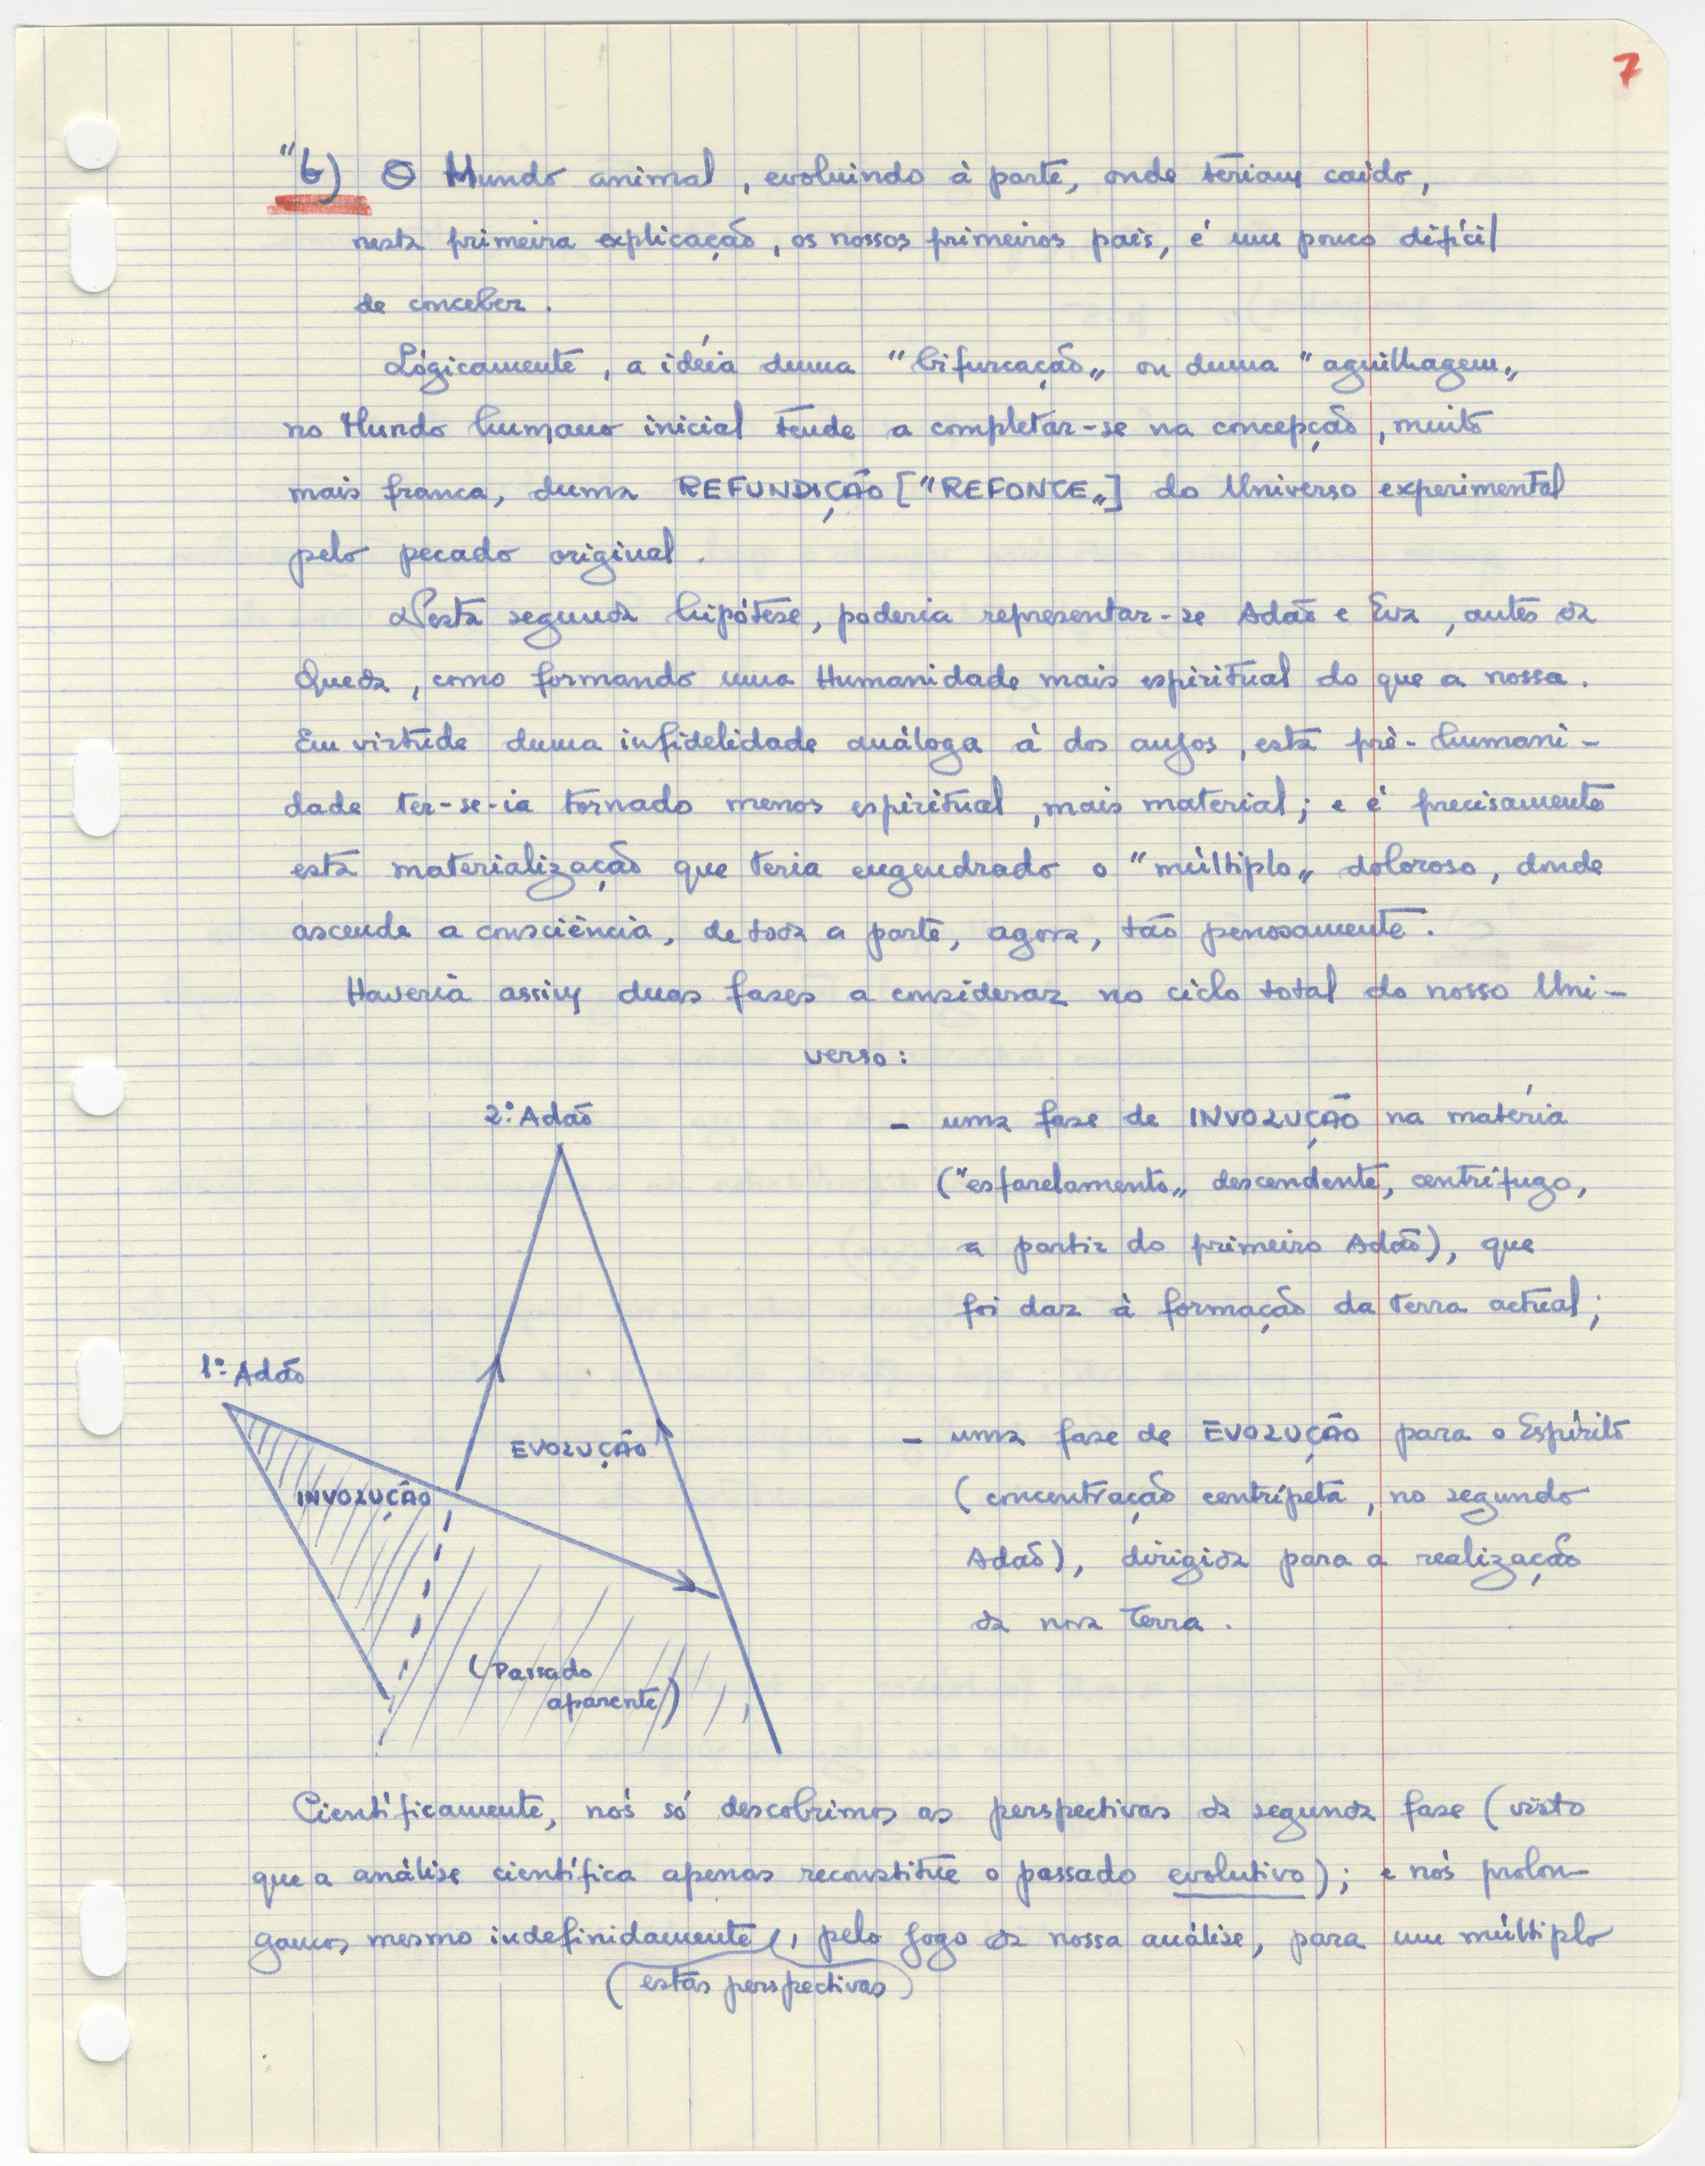 7
"b) O Mundo animal, evoluindo à parte, onde teriam caído,
nesta primeira explicação, os nossos primeiros pais, é um pouco difícil
de conceber.
Lógicamente, a idéia duma "bifurcação„ ou duma "agulhagem„
no Mundo humano inicial tende a completar-se na concepção, muito
mais franca, duma REFUNDIÇÃO ["REFONTE„] do Universo experimental
pelo pecado original.
Nesta segunda hipótese, poderia representar-se Adão e Eva, antes da
Queda, como formando uma Humanidade mais espiritual do que a nossa.
Em virtude duma infidelidade análoga à dos anjos, esta pré-humani-
dade ter-se-ia tornado menos espiritual, mais material; e é precisamente
esta materialização que teria engendrado o "múltiplo„ doloroso, donde
ascende a consciência, de toda a parte, agora, tão penosamente.
Haveria assim duas fases a considerar no ciclo total do nosso Uni-
verso:
2.º Adão
- uma fase de INVOLUÇÃO na matéria
("esfarelamento„ descendente, centrífugo,
a partir do primeiro Adão), que
foi dar à formação da terra actual;
1.º Adão
EVOLUÇÃO
INVOLUÇÃO
- uma fase de EVOLUÇÃO para o Espírito
(concentração centrípeta, no segundo
Adão), dirigida para a realização
da nova Terra.
(Passado
aparente)
Científicamente, nós só descobrimos as perspectivas da segunda fase (visto
que a análise científica apenas reconstitue o passado evolutivo); e nós prolon-
gamos mesmo indefinidamente, pelo jogo da nossa análise, para um múltiplo
(estas perspectivas)